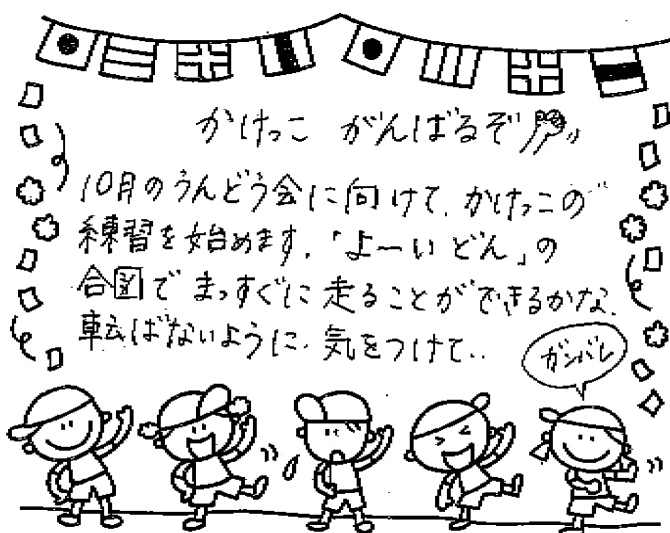 かけっこ がんばるぞ
10月のうんどう会に向けて、かけっこの
練習を始めます。「よーいどん」の
合図でまっすぐに走ることができるかな。
転ばないように、気をつけて‥
ガンバレ